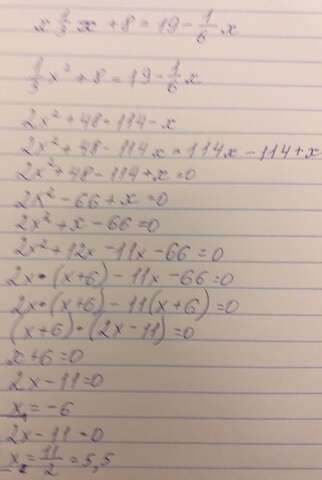 x 1/3 x + 8 = 19 - 1/6 x
1/3 x² + 8 = 19 - 1/6 x
2x² + 48 = 114 - x
2x² + 48 - 114x = 114x - 114 + x
2x² + 48 - 114 + x = 0
2x² - 66 + x = 0
2x² + x - 66 = 0
2x² + 12x - 11x - 66 = 0
2x • (x+6) - 11x - 66 = 0
2x • (x+6) - 11(x+6) = 0
(x+6) • (2x - 11) = 0
x + 6 = 0
2x - 11 = 0
x₁ = -6
2x - 11 = 0
x₂ = 11/2 = 5,5